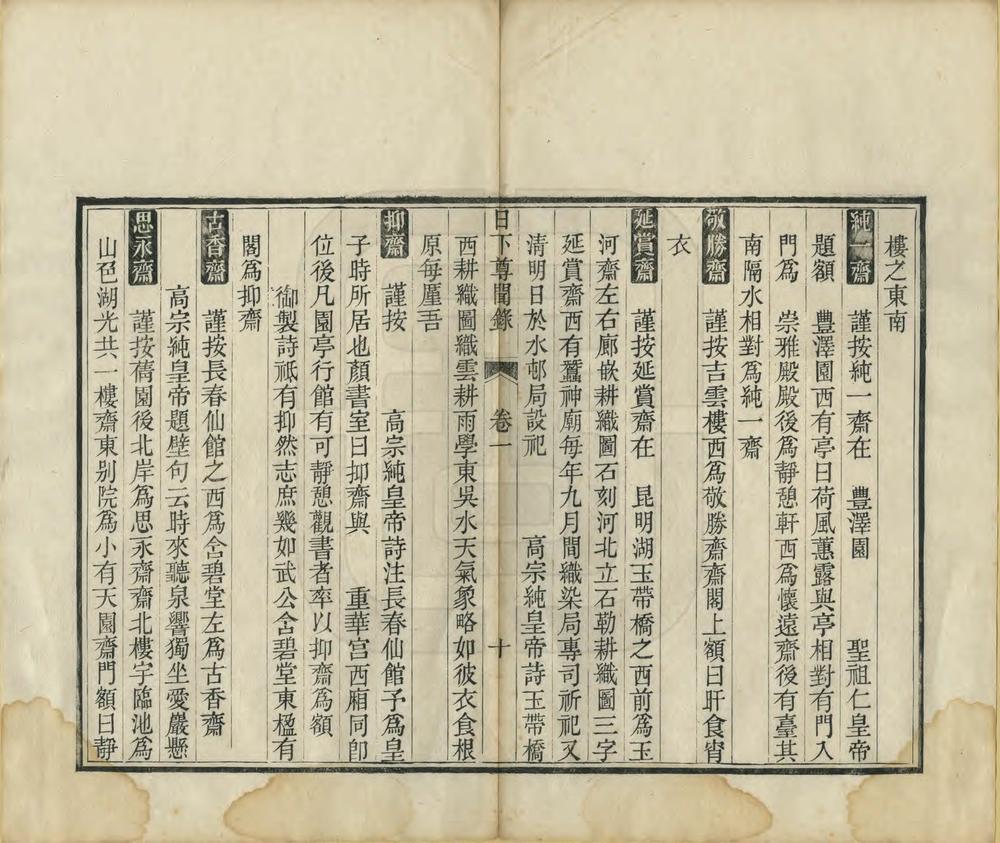 樓之東南
純一齋　謹按純一齋在　豐澤園　聖祖仁皇帝
題額　豐澤園西有亭曰荷風蕙露與亭相對有門入
門爲　崇雅殿殿後爲靜憩軒西爲懷遠齋後有臺其
南隔水相對爲純一齋
敬勝齋　謹按吉雲樓西爲敬勝齋齋閣上額曰旰食宵
衣
延賞齋　謹按延賞齋在　昆明湖玉帶橋之西前爲玉
河齋左右廊嵌耕織圖石刻河北立石勒耕織圖三字
延賞齋西有蠶神廟每年九月間織染局專司祈祀又
清明日於水邨局設祀　高宗純皇帝詩玉帶橋
日下尊聞錄　卷一　十
西耕織圖織雲耕雨學東吳水天氣象略如彼衣食根
原每厪吾
抑齋　謹按　高宗純皇帝詩注長春仙館予爲皇
子時所居也顏書室曰抑齋與　重華宮西廂同卽
位後凡園亭行館有可靜憩觀書者率以抑齋爲額
御製詩祗有抑然志庶幾如武公含碧堂東楹有
閣爲抑齋
古香齋　謹按長春仙館之西爲含碧堂左爲古香齋
高宗純皇帝題壁句云時來聽泉響獨坐愛巖懸
思永齋　謹按蒨園後北岸爲思永齋齋北樓宇臨池爲
山色湖光共一樓齋東别院爲小有天園齋門額曰靜